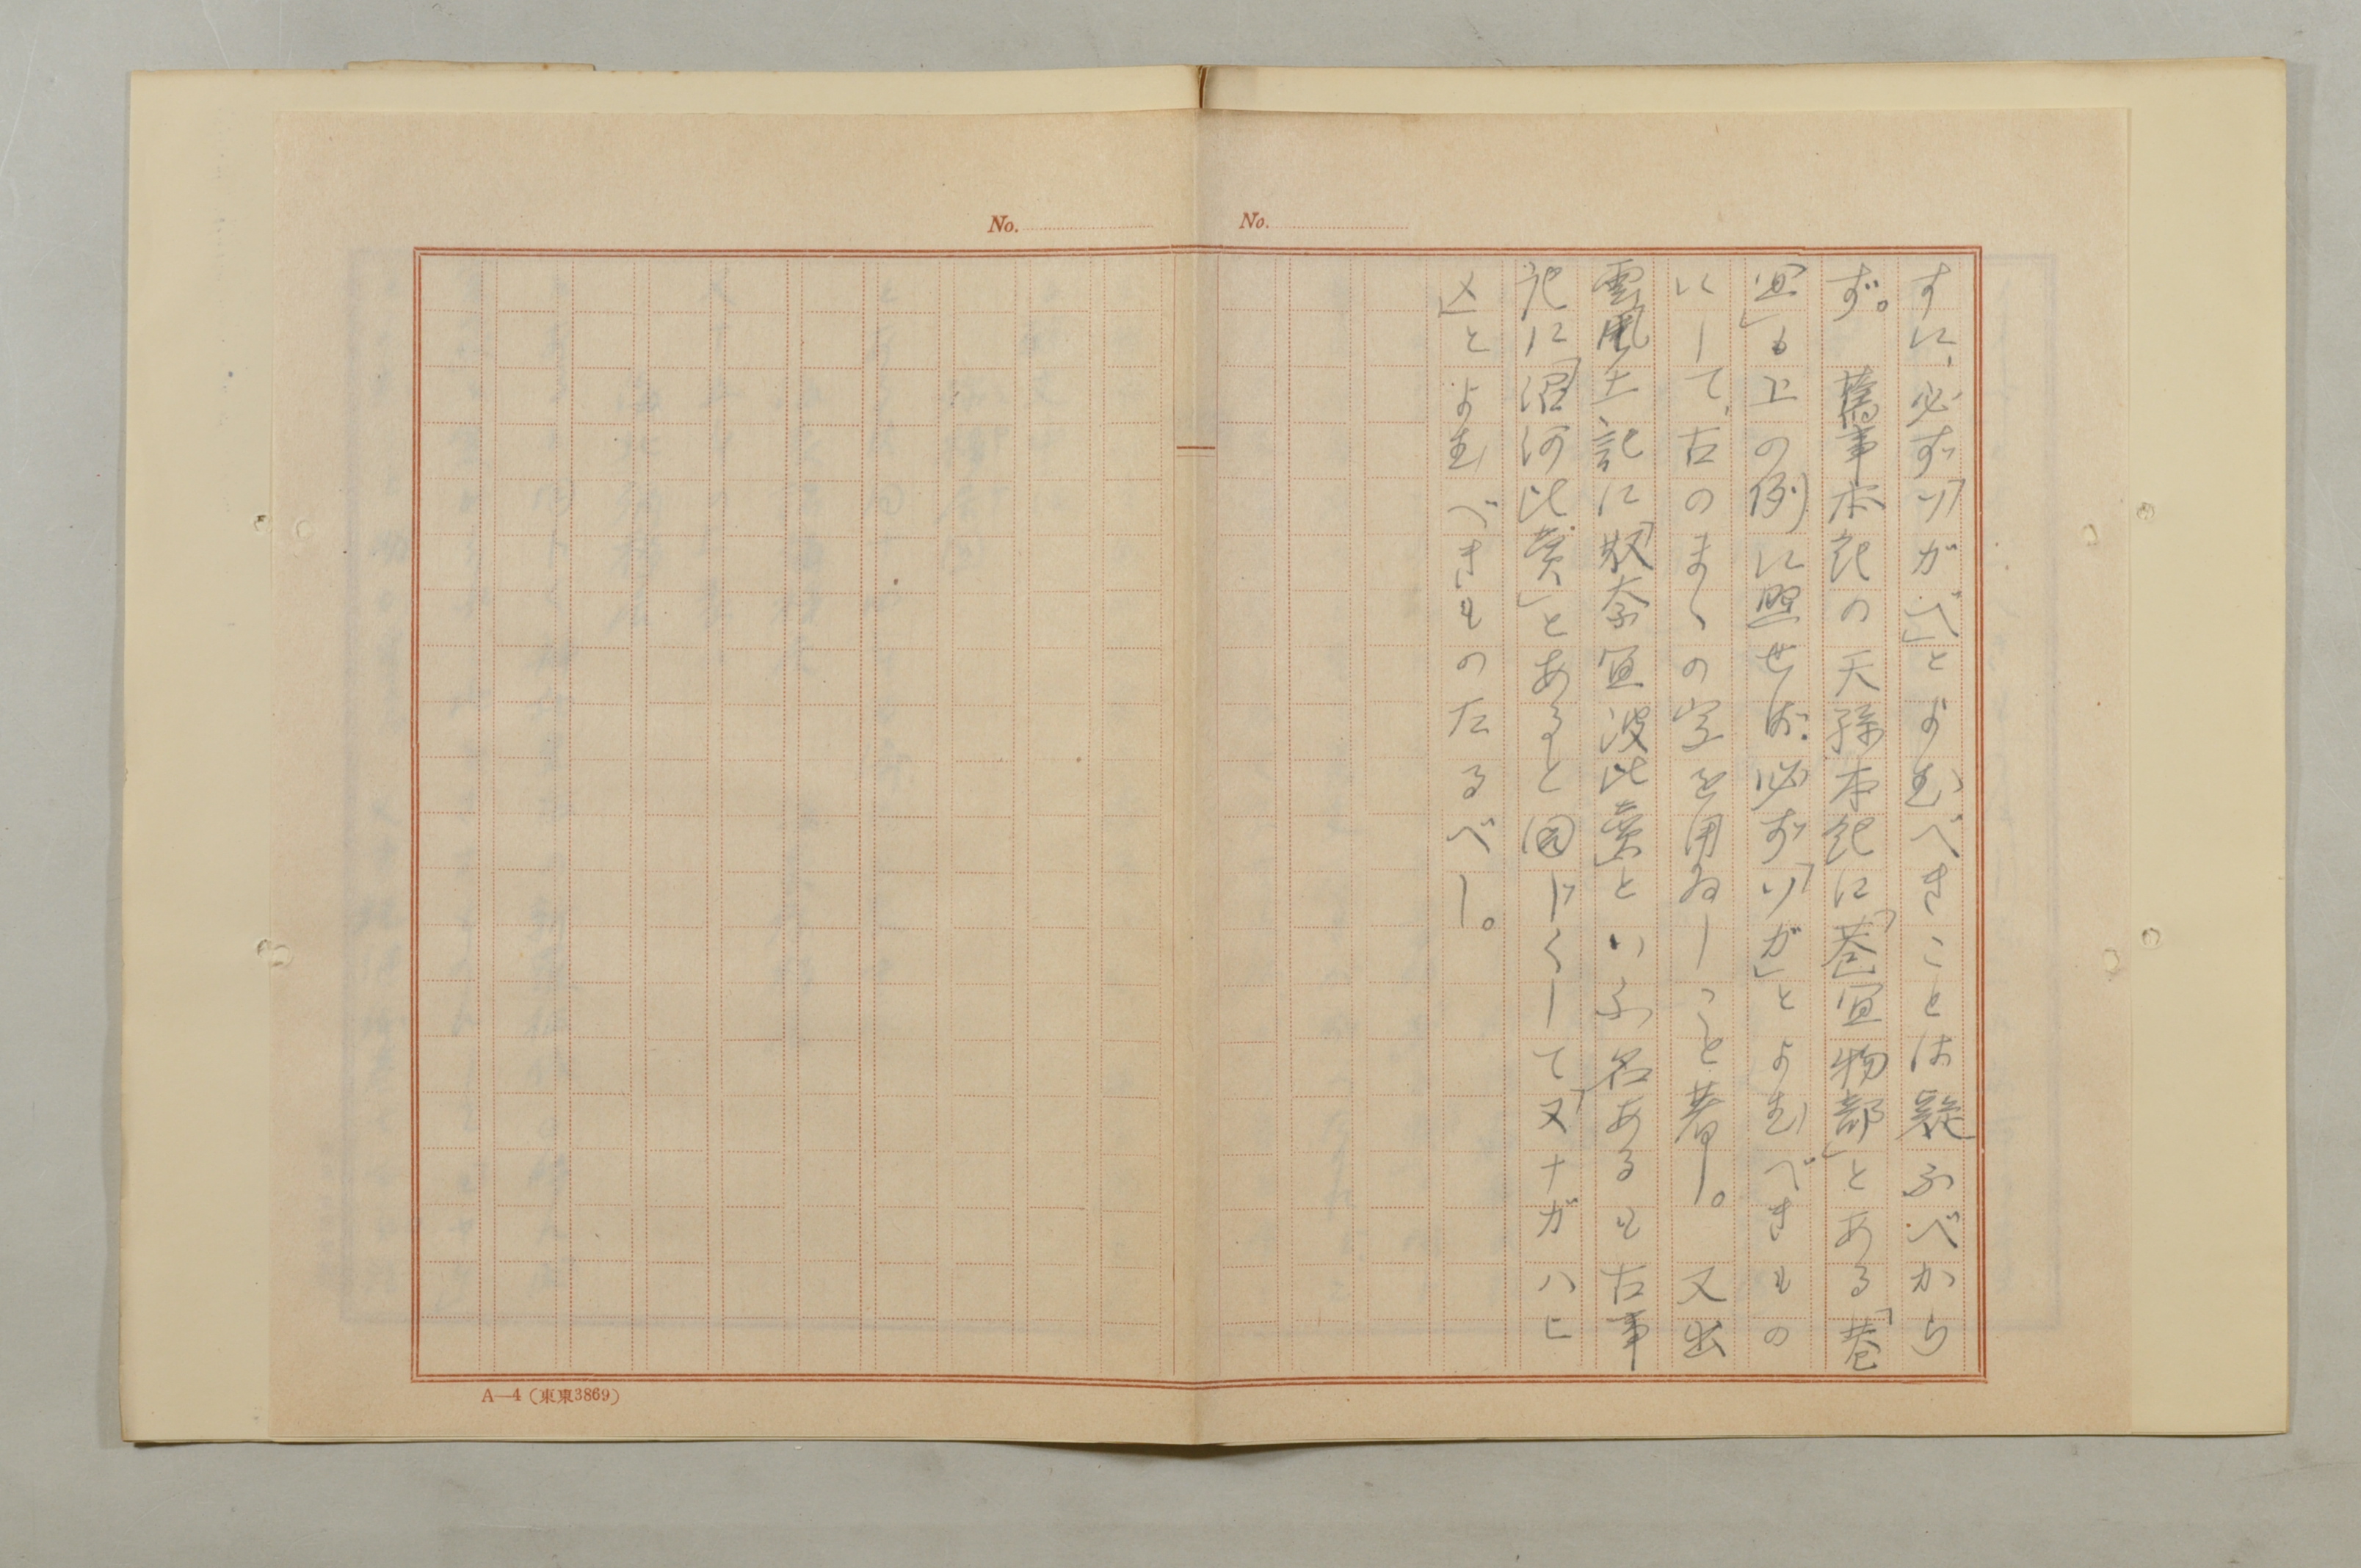 No.
No.
すに、必ず「ソガベ」とよむべきことは疑ふべから
ず。　舊事本紀の天孫本紀に「巷宜物部」とある「巷
宜」も上の例に照せば必ず「ソガ」とよむべきもの
にして、古のまゝの字を用ゐしこと著し。　又出
雲風土記に「奴奈宜波比賣」といふ名あるも古事
記に「沼河比賣」とあると同じくして「ヌナガハヒ
メ」とよむべきものたるべし。
A—4 (東東3869)